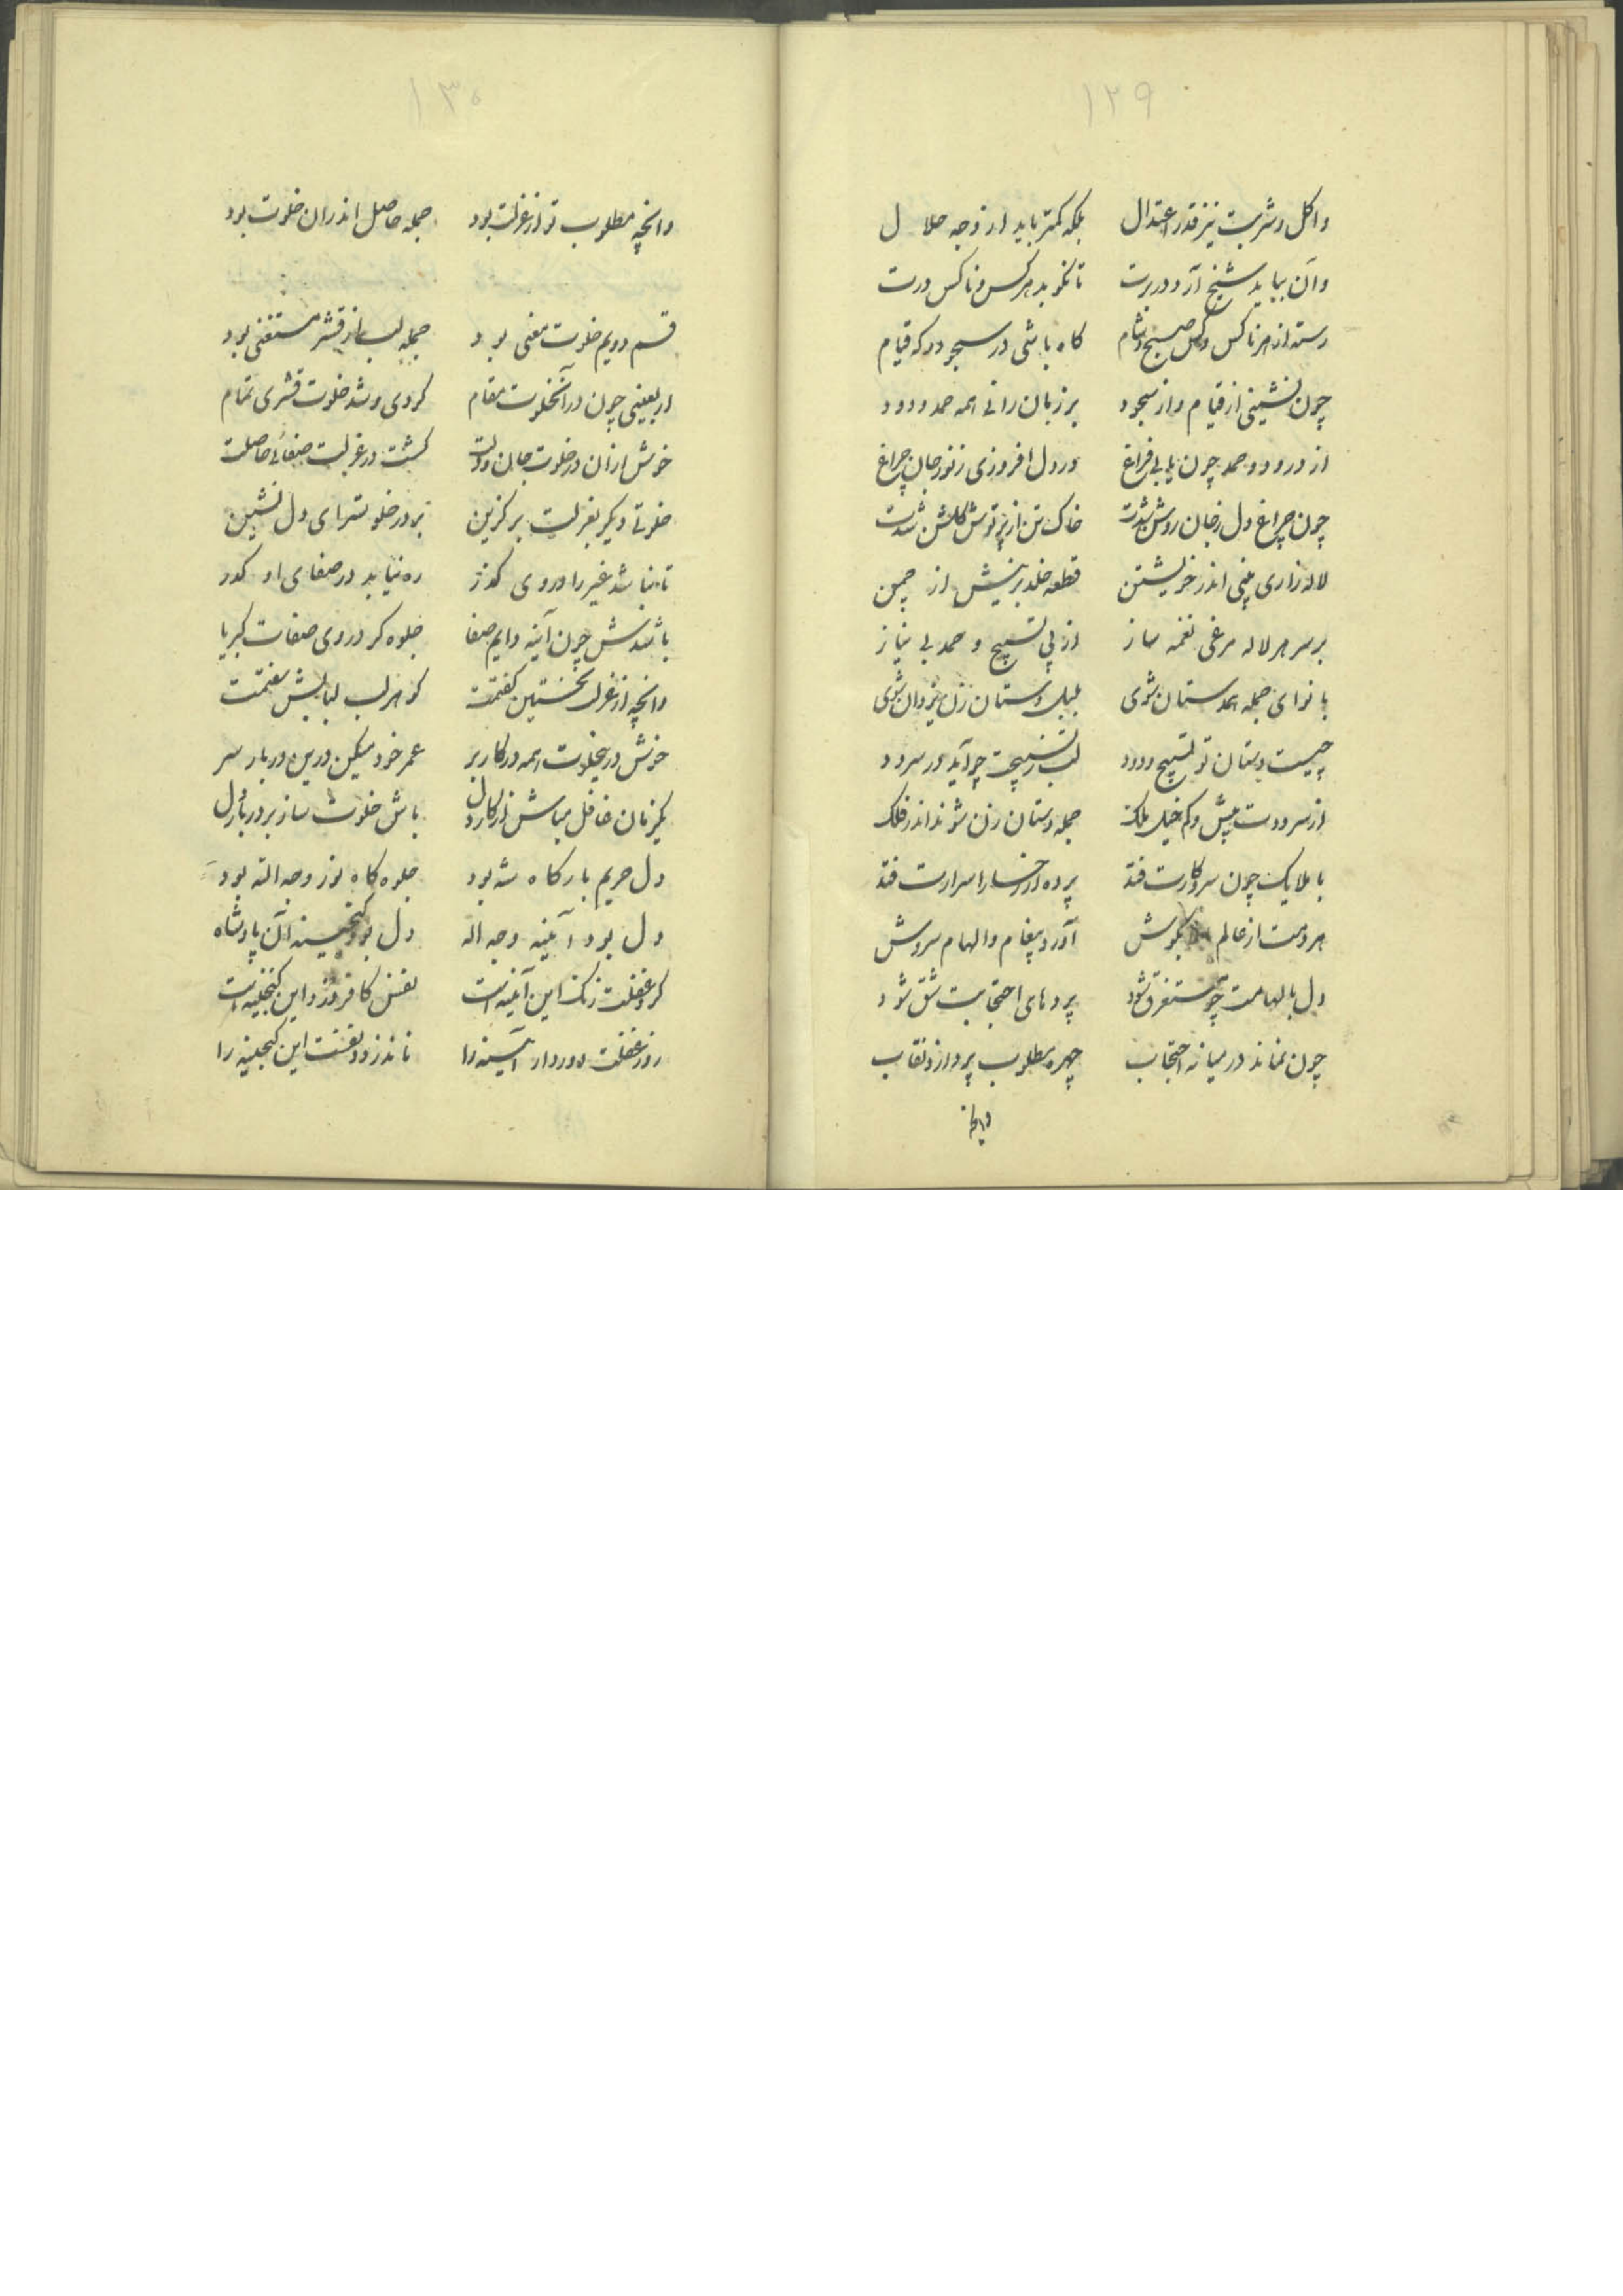 ۱۲۹
واکل وشربت نیز قدر اعتدال بلکه کمتر باید از وجه حلال
وآن بباید شیخ آرد دربرت تا نکوبد هرکس وناکس درت
رسته از هر ناکس وکس صبح وشام کاه باشی در سجود وکه قیام
چون نشینی از قیام واز سجود بر زبان رانی همه حمد ودرود
از درود وحمد چون یابی فراغ در دل افروزی زنور جان چراغ
چون چراغ دل زجان روشن شدت خاک تن از پرتوش کلشن شدت
لاله زاری بینی اندر خویشتن قطعه خلد برینش از چمن
بر سر هر لاله مرغی نغمه ساز از پی تسبیح و حمد بی نیاز
با نوای جمله همدستان شوی بلبل دستان زن یزدان شوی
چیست دستان تو تسبیح ودرود لب زتسبیحت چو آید در سرود
از سرودت بیش وکم خیل ملک جمله دستان زن شوند اندر فلک
با ملایک چون سر وکارت فتد پرده از رخسار اسرارت فتد
هر دمت از عالم بکوش آورد پیغام والهام سروش
دل بالهامت چو مستغرق شود پردهای احتجابت شق شود
چون نماند در میانه احتجاب چهره مطلوب بردارد نقاب
وانچه
۱۳۰
وانچه مطلوب تو از عزلت بود جمله حاصل اندران خلوت بود
قسم دویم خلوت معنی بود جمله لب از قشر مستغنی بود
اربعینی چون در آنخلوت مقام کردی وشد خلوت قشری تمام
خوش ازان در خلوت جان ودلت کشت در عزلت صفائی حاصلت
خلوتی دیکر بعزلت برکزین بر در خلوتسرای دل نشین
تا نباشد غیر را در وی کذر ره نیابد در صفای او کدر
باشدش چون آینه دایم صفا جلوه کر در وی صفات کبریا
وانچه از عزلت نخستین کفتمت کوهر لب لبابش سفتمت
خوش در ینخلوت همه در کار بر عمر خود میکن درین دربار سر
یکزمان غافل مباش از کار دل باش خلوت ساز بر دربار دل
دل حریم بارکاه شه بود جلوه کاه نور وجه الله بود
دل بود آیینه وجه اله دل بود کنجینه آن پادشاه
کرد غفلت زنک این آیینه است نفس کافر دزد این کنجینه است
زود غفلت دور دار آیینه را تا ندزدد نفست این کنجینه را